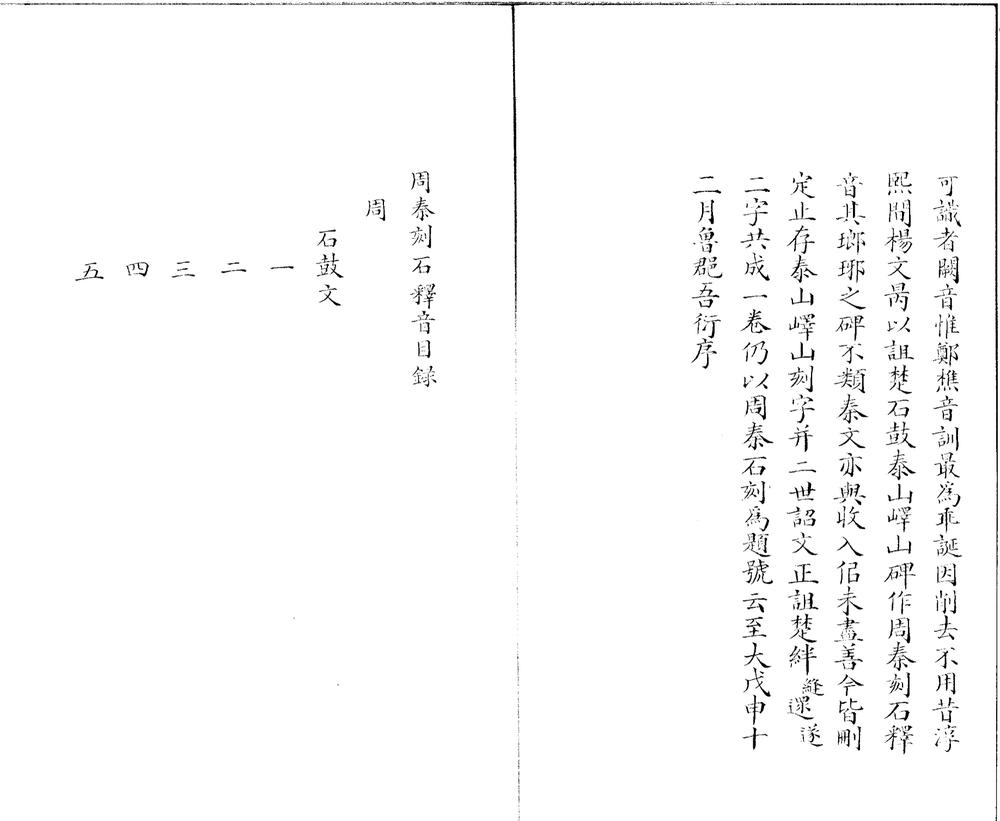 可識者闕音惟鄭樵音訓最爲乖誕因削去不用昔淳
熙間楊文昺以詛楚石鼓泰山嶧山碑作周秦刻石釋
音其瑯琊之碑不類秦文亦與收入佀未盡善今皆刪
定止存泰山嶧山刻字并二世詔文正詛楚絆縫遝遂
二字共成一卷仍以周秦石刻爲題號云至大戊申十
二月魯郡吾衍序
周秦刻石釋音目錄
周
石鼓文
一
二
三
四
五